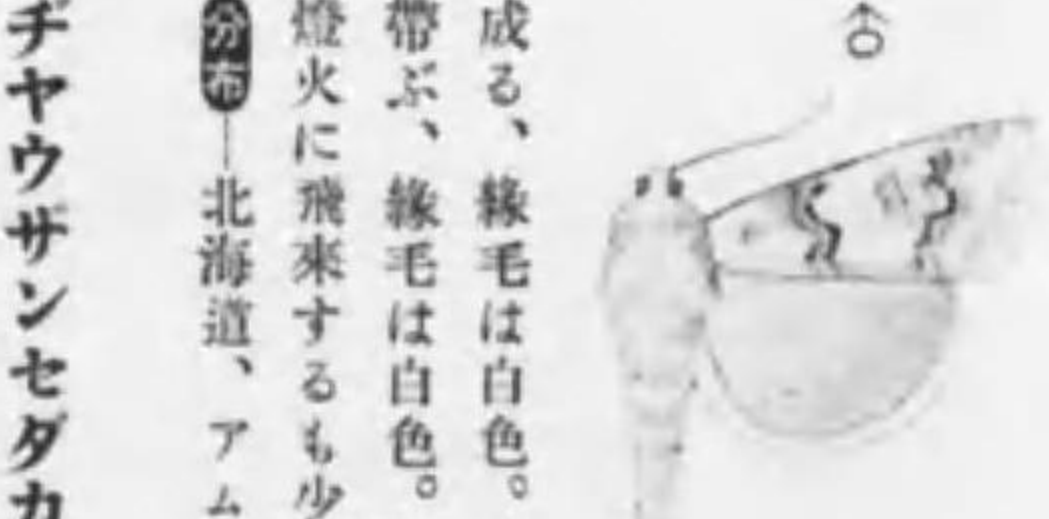 ♂
成る、緣毛は白色。
帶ぶ、緣毛は白色。
燈火に飛來するも少
分布―北海道、アム
ヂヤウザンセダカ